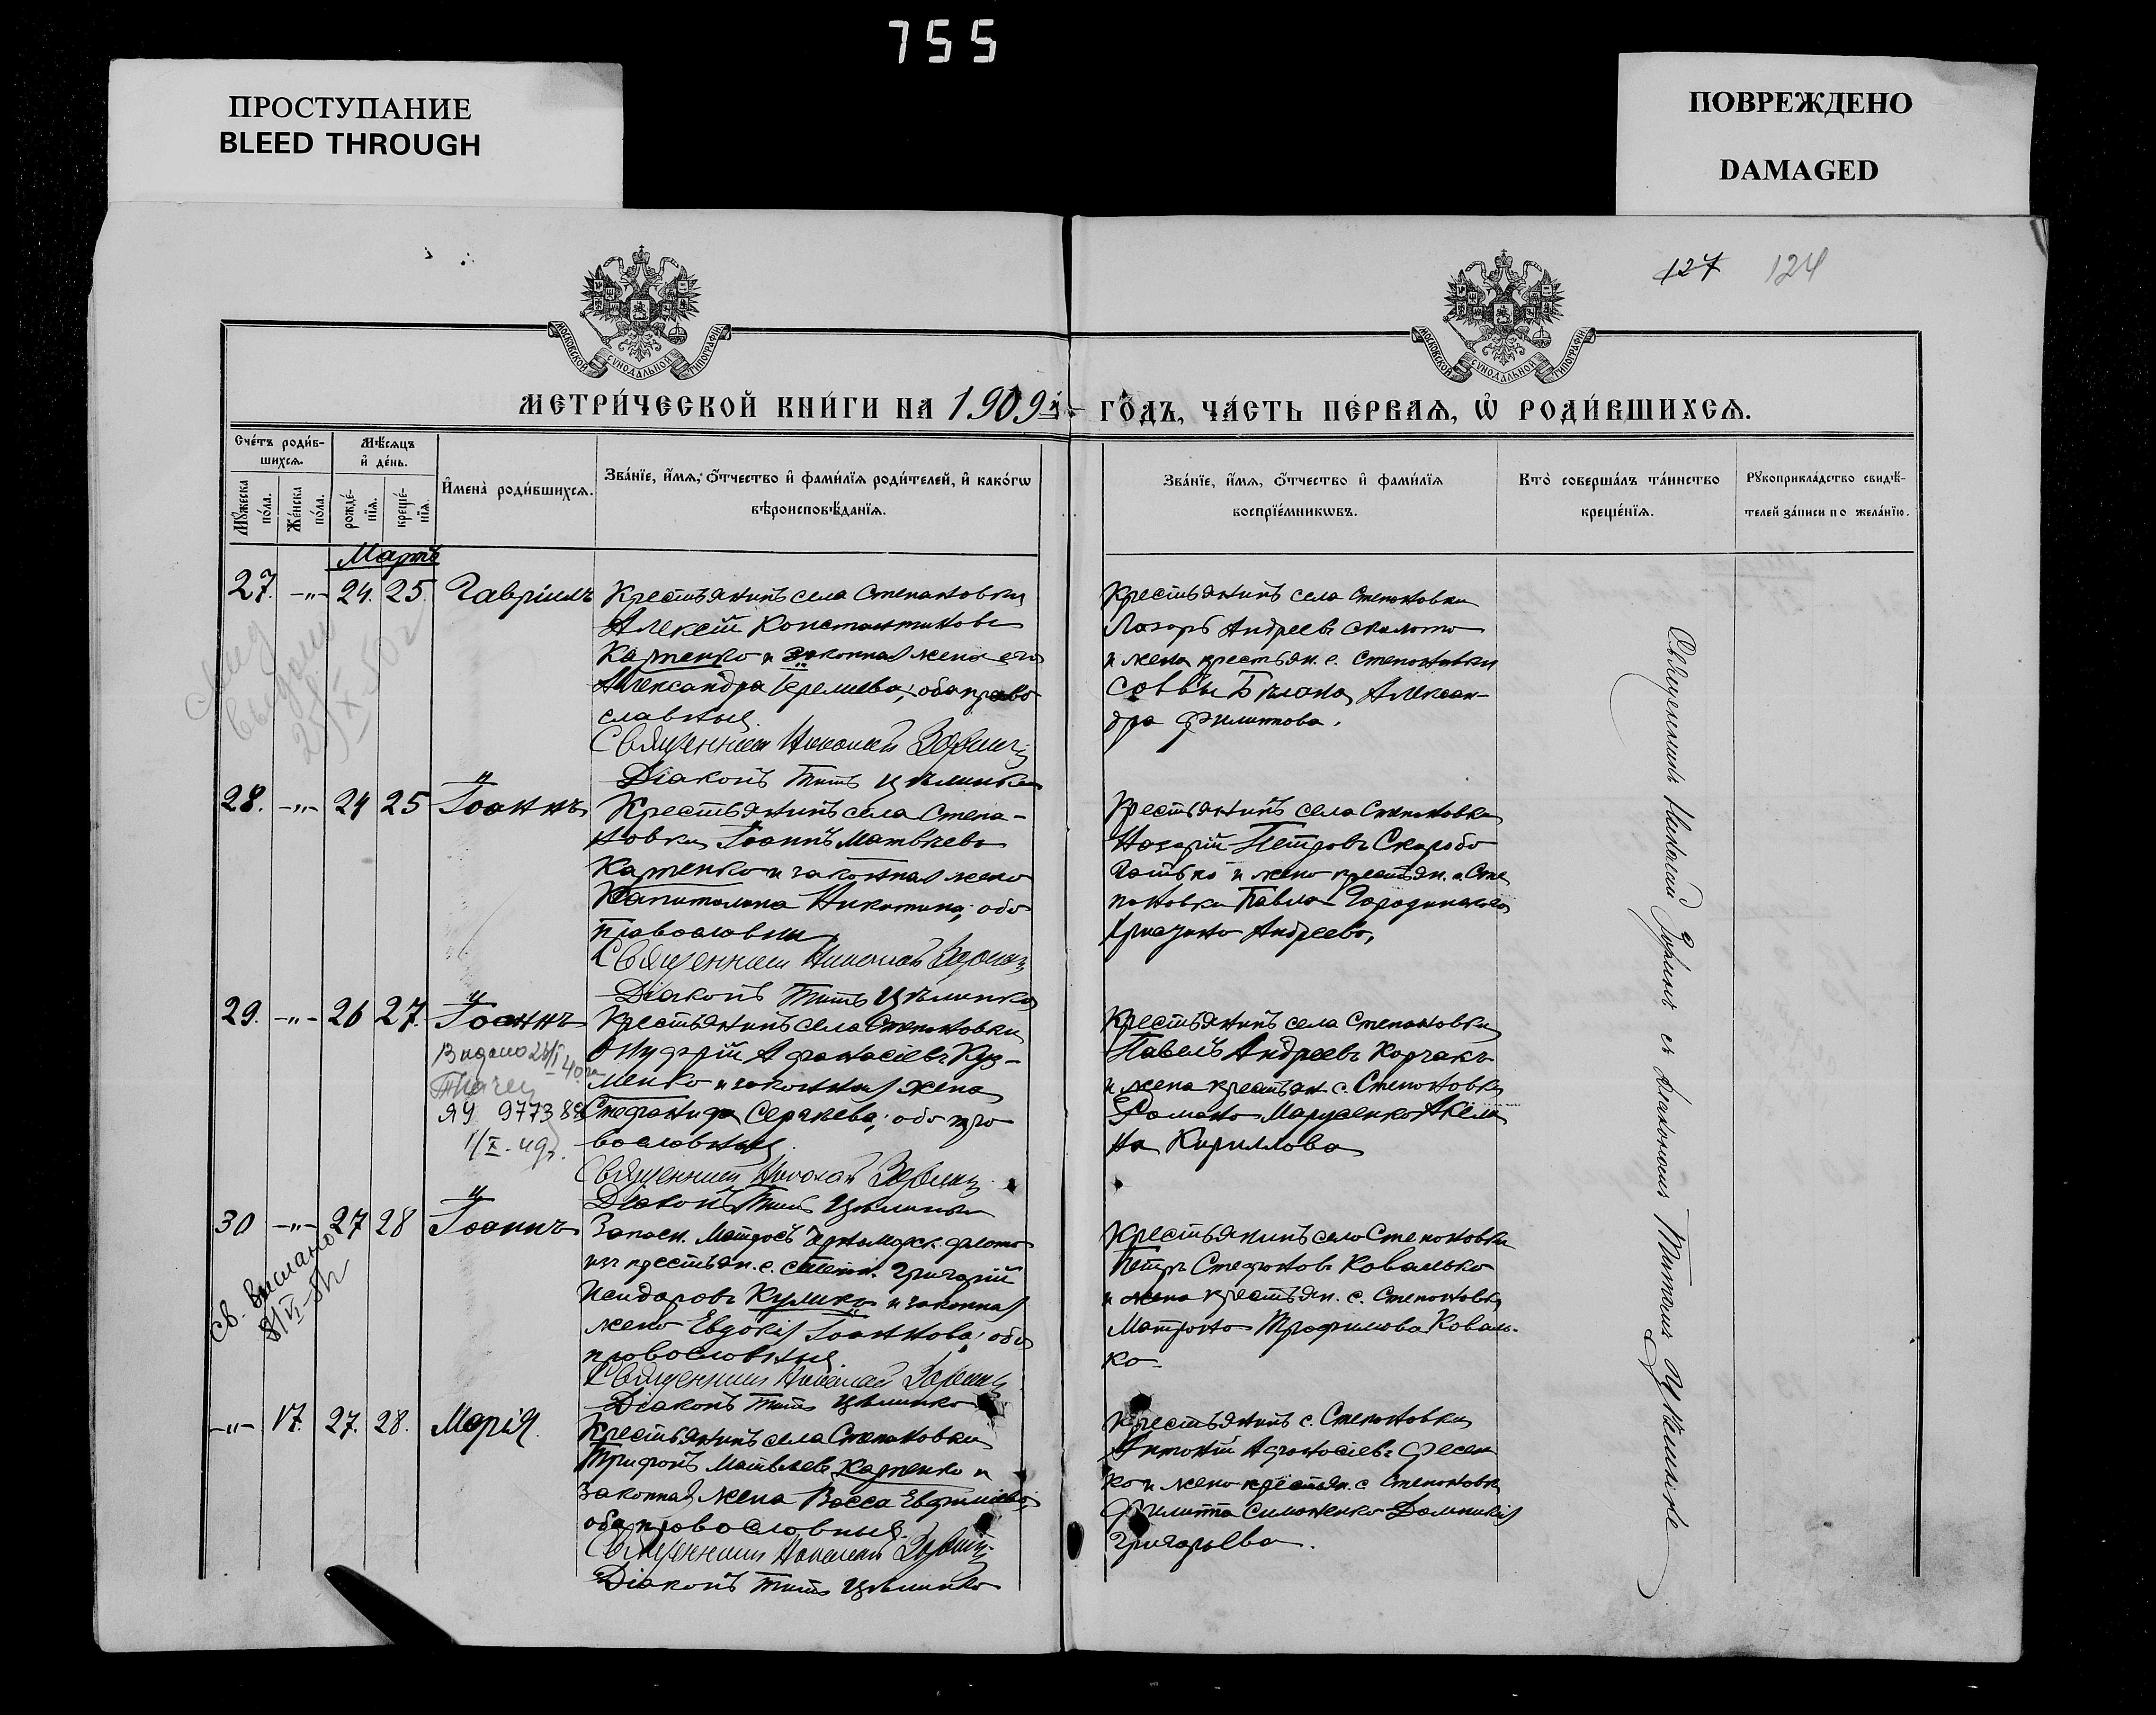 755
ПРОСТУПАНИЕ
BLEED THROUGH
ПОВРЕЖДЕНО
DAMAGED
127 124
МОСКОВСКОЙ СУНОДАЛЬНОЙ ТИПОГРАФІИ
МОСКОВСКОЙ СУНОДАЛЬНОЙ ТИПОГРАФІИ
МЕТРИ́ЧЕСКОЙ КНИ́ГИ НА 1909й ГО́ДЪ, ЧА́СТЬ ПЕ́РВАѦ, Ѡ҆ РОДИ́ВШИХСѦ.
Сче́тъ роди́в-
шихсѧ.
Мѣ́сѧцъ
и҆ де́нь.
Мꙋ́жеска по́ла.
Же́нска по́ла.
рожде́-
нїѧ.
креще́-
нїѧ.
И҆мена̀ роди́вшихсѧ.
Зва́нїе, и҆́мѧ, ѻ҆́тчество и҆ фами́лїѧ роди́телей, и҆ како́гѡ
вѣроисповѣ́данїѧ.
Зва́нїе, и҆́мѧ, ѻ҆́тчество и҆ фами́лїѧ
воспрїе́мникѡвъ.
Кто̀ соверша́лъ та́инство
креще́нїѧ.
Рꙋкоприкла́дство свидѣ́-
телей за́писи по жела́нїю.
Мартъ
27. -„- 24. 25. Гавріилъ
Крестьянинъ села Степановки
Алексій Константиновъ
Карпенко и законная жена его
Александра; оба право
славные.
Священникъ Николай
Діаконъ Титъ Цѣлинко
Крестьянинъ села Степановки
Лазарь Андреевъ
и жена крестьян. с. Степановки
Саввы Бѣлана, Алексан-
дра Филиппова.
28. -„- 24 25 Іоаннъ
Крестьянинъ села Степа-
новки Іоаннъ Матвѣевъ
Карпенко и законная жена
Капитолина Никитина; оба
православны
Священникъ Николай
Діаконъ Титъ Цѣлинко
Крестьянинъ села Степановки
Назарій Петровъ Скоробо
гатько и жена крестьян. с. Сте
пановки Павла
Андреева.
29. -„- 26 27. Іоаннъ
Видано
ЯЧ 977388
1/X-49г.
Крестьянинъ села Степановки
Онуфрій Афанасіевъ Куз-
менко и законная жена
Стефанида Сергѣева; оба пра
вославные.
Священникъ Николай
Діаконъ Титъ Цѣлинко
Крестьянинъ села Степановки
Павелъ Андреевъ Корчакъ
и жена крестьян. с. Степановки
Романа Марусенко Акели
на Кириллова
30 -„- 27 28 Іоаннъ
Св. выслано
8/VI-51г
Запасн. Матросъ Черноморск. флота
изъ крестьян. с. Степан. Григорій
Исидоровъ Кулико и законная
жена Евдокія Іоаннова; оба
православные.
Священникъ Николай
Діаконъ Титъ Цѣлинко
Крестьянинъ села Степановки
Петръ Стефановъ Ковалько
и жена крестьян. с. Степановки
Матрона Трофимова Коваль-
ко
-„- 17. 27. 28. Марія.
Крестьянинъ села Степановки
Трифонъ Матвѣевъ Карпенко и
законная жена Васса Евфиміева;
оба православные.
Священникъ Николай
Діаконъ Титъ Цѣлинко
Крестьянинъ с. Степановки
Антоній Афанасіевъ Фесен
ко и жена крестьян. с. Степановки
Филиппа Симоненко Домникія
Григорьева.
Священникъ Николай съ діакономъ Титомъ Цѣлинко